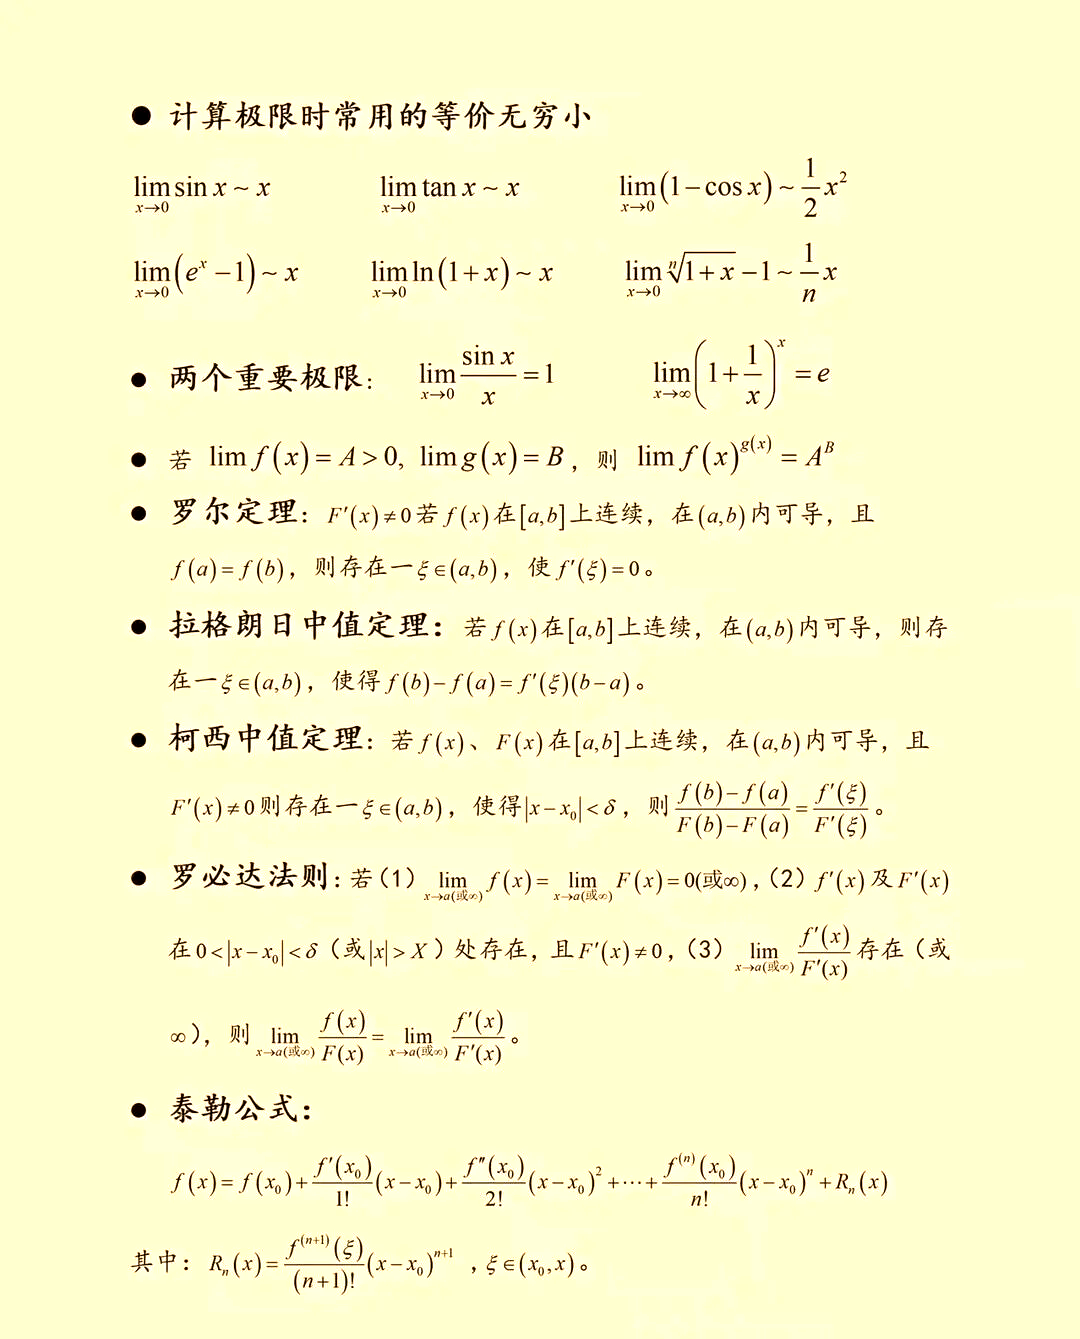 ● 计算极限时常用的等价无穷小
$\lim_{x \to 0} \sin x \sim x$ $\lim_{x \to 0} \tan x \sim x$ $\lim_{x \to 0} (1 - \cos x) \sim \frac{1}{2}x^2$
$\lim_{x \to 0} (e^x - 1) \sim x$ $\lim_{x \to 0} \ln(1 + x) \sim x$ $\lim_{x \to 0} \sqrt[n]{1 + x} - 1 \sim \frac{1}{n}x$
● 两个重要极限: $\lim_{x \to 0} \frac{\sin x}{x} = 1$ $\lim_{x \to \infty} \left(1 + \frac{1}{x}\right)^x = e$
● 若 $\lim f(x) = A > 0, \lim g(x) = B$，则 $\lim f(x)^{g(x)} = A^B$
● 罗尔定理: $F'(x) \neq 0$ 若 $f(x)$ 在 $[a,b]$ 上连续，在 $(a,b)$ 内可导，且
$f(a) = f(b)$，则存在一 $\xi \in (a,b)$，使 $f'(\xi) = 0$。
● 拉格朗日中值定理: 若 $f(x)$ 在 $[a,b]$ 上连续，在 $(a,b)$ 内可导，则存
在一 $\xi \in (a,b)$，使得 $f(b) - f(a) = f'(\xi)(b - a)$。
● 柯西中值定理: 若 $f(x)$、$F(x)$ 在 $[a,b]$ 上连续，在 $(a,b)$ 内可导，且
$F'(x) \neq 0$ 则存在一 $\xi \in (a,b)$，使得 $|x - x_0| < \delta$，则 $\frac{f(b) - f(a)}{F(b) - F(a)} = \frac{f'(\xi)}{F'(\xi)}$。
● 罗必达法则: 若（1）$\lim_{x \to a(或\infty)} f(x) = \lim_{x \to a(或\infty)} F(x) = 0(或\infty)$，（2）$f'(x)$ 及 $F'(x)$
在 $0 < |x - x_0| < \delta$（或 $|x| > X$）处存在，且 $F'(x) \neq 0$，（3）$\lim_{x \to a(或\infty)} \frac{f'(x)}{F'(x)}$ 存在（或
∞），则 $\lim_{x \to a(或\infty)} \frac{f(x)}{F(x)} = \lim_{x \to a(或\infty)} \frac{f'(x)}{F'(x)}$。
● 泰勒公式:
$f(x) = f(x_0) + \frac{f'(x_0)}{1!}(x - x_0) + \frac{f''(x_0)}{2!}(x - x_0)^2 + \cdots + \frac{f^{(n)}(x_0)}{n!}(x - x_0)^n + R_n(x)$
其中: $R_n(x) = \frac{f^{(n+1)}(\xi)}{(n+1)!}(x - x_0)^{n+1}$，$\xi \in (x_0, x)$。